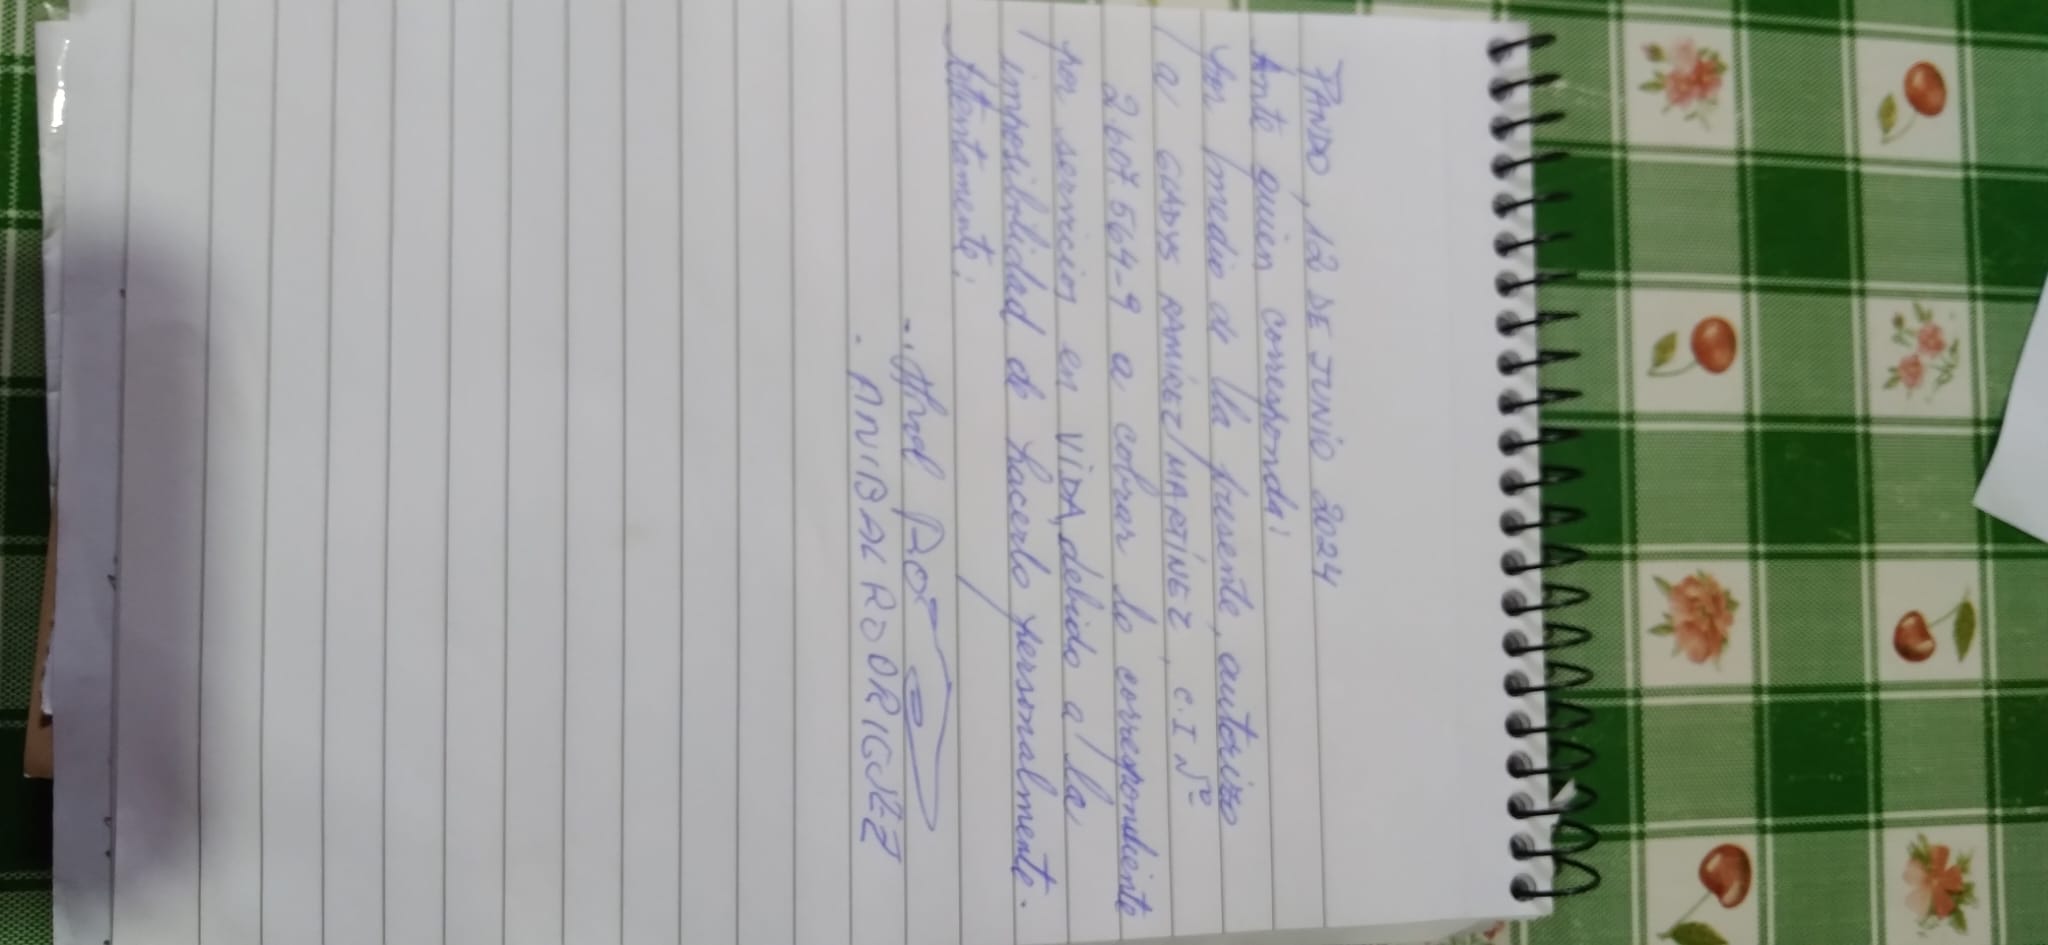 PANDO, 12 DE JUNIO 2024
Ante quien corresponda:
por medio de la presente, autorizo
a GLADYS RAMÍREZ MARTÍNEZ, C.I Nº
2.607.564-9 a cobrar lo correspondiente
por servicios en VIDA, debido a la
imposibilidad de hacerlo personalmente.
Atentamente:
ANIBAL RODRIGUEZ